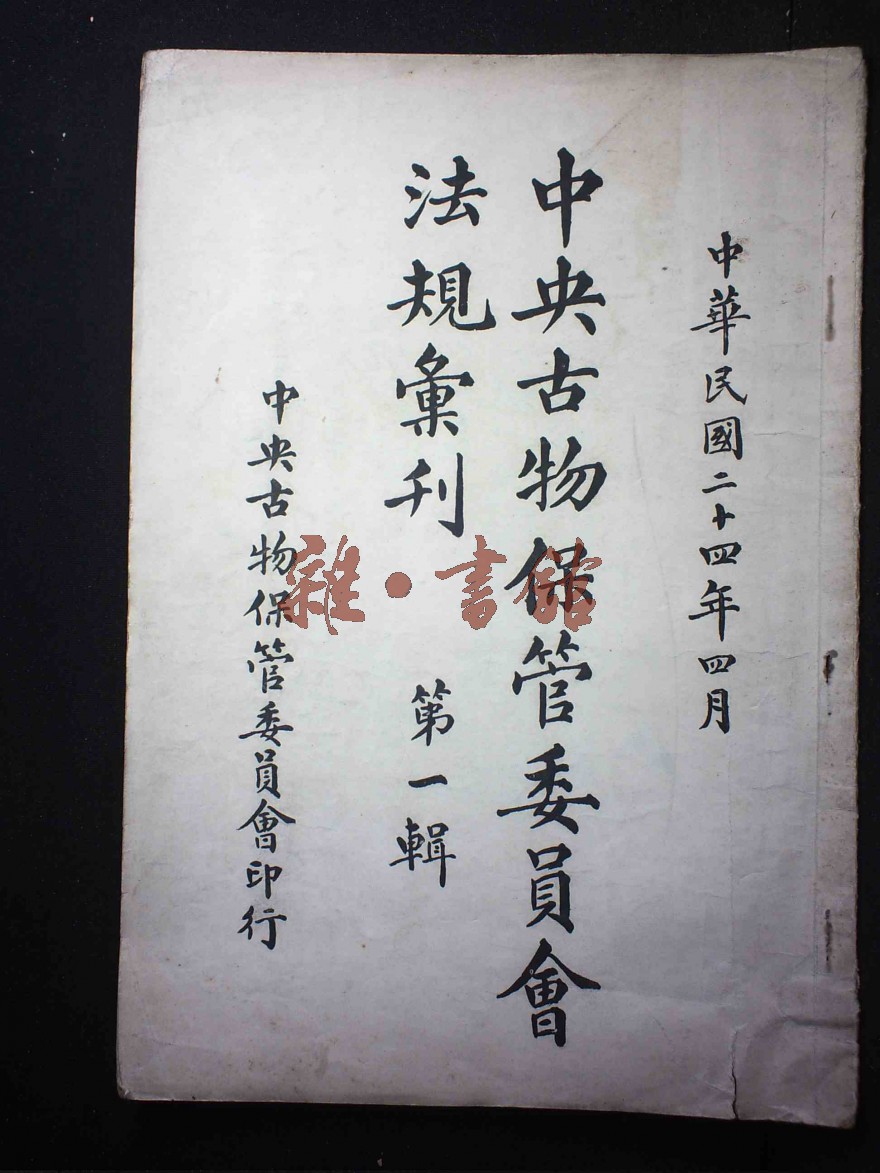 中華民國二十四年四月
中央古物保管委員會
法規彙刊 第一輯
中央古物保管委員會印行
雜·書館